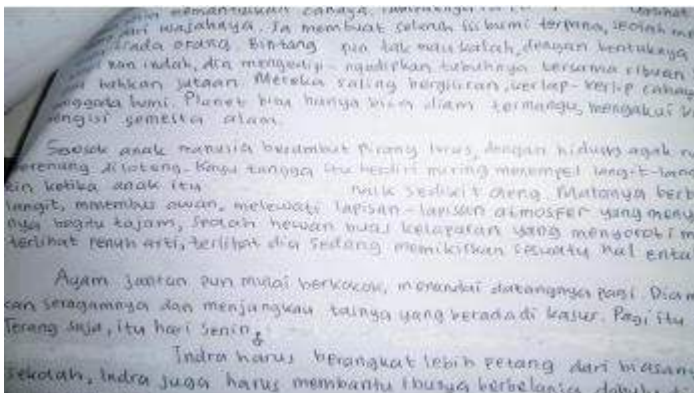 memantulkan cahaya
dari wajahnya. Ia membuat seluruh isi bumi terpana, seolah
pada orang. Bintang pun tak mau kalah, dengan bentuknya
nan indah, dia mengedip-ngedipkan tubuhnya bersama ribuan
bahkan jutaan. Mereka saling bergiliran, kerlap-kerlip cahay
menggoda bumi. Planet biru hanya bisa diam termangu, mengakui
semesta alam.
Sesosok anak manusia berambut pirang lurus, dengan hidung agak
merenung diloteng. Kayu tangga itu berdiri miring menempel langit-lang
ketika anak itu naik sedikit oleng. Matanya
langit, menembus awan, melewati lapisan-lapisan atmosfer yang
nya begitu tajam, seolah hewan buas kelaparan yang menyoroti m
terlihat penuh arti, terlihat dia sedang memikirkan sesuatu hal enta
Ayam jantan pun mulai berkokok, menandai datangnya pagi. Dia
kan seragamnya dan menjangkau tasnya yang berada di kasur. Pagi itu
Terang saja, itu hari Senin.
Indra harus berangkat lebih petang dari biasan
sekolah, Indra juga harus membantu ibunya berbelanja dahulu